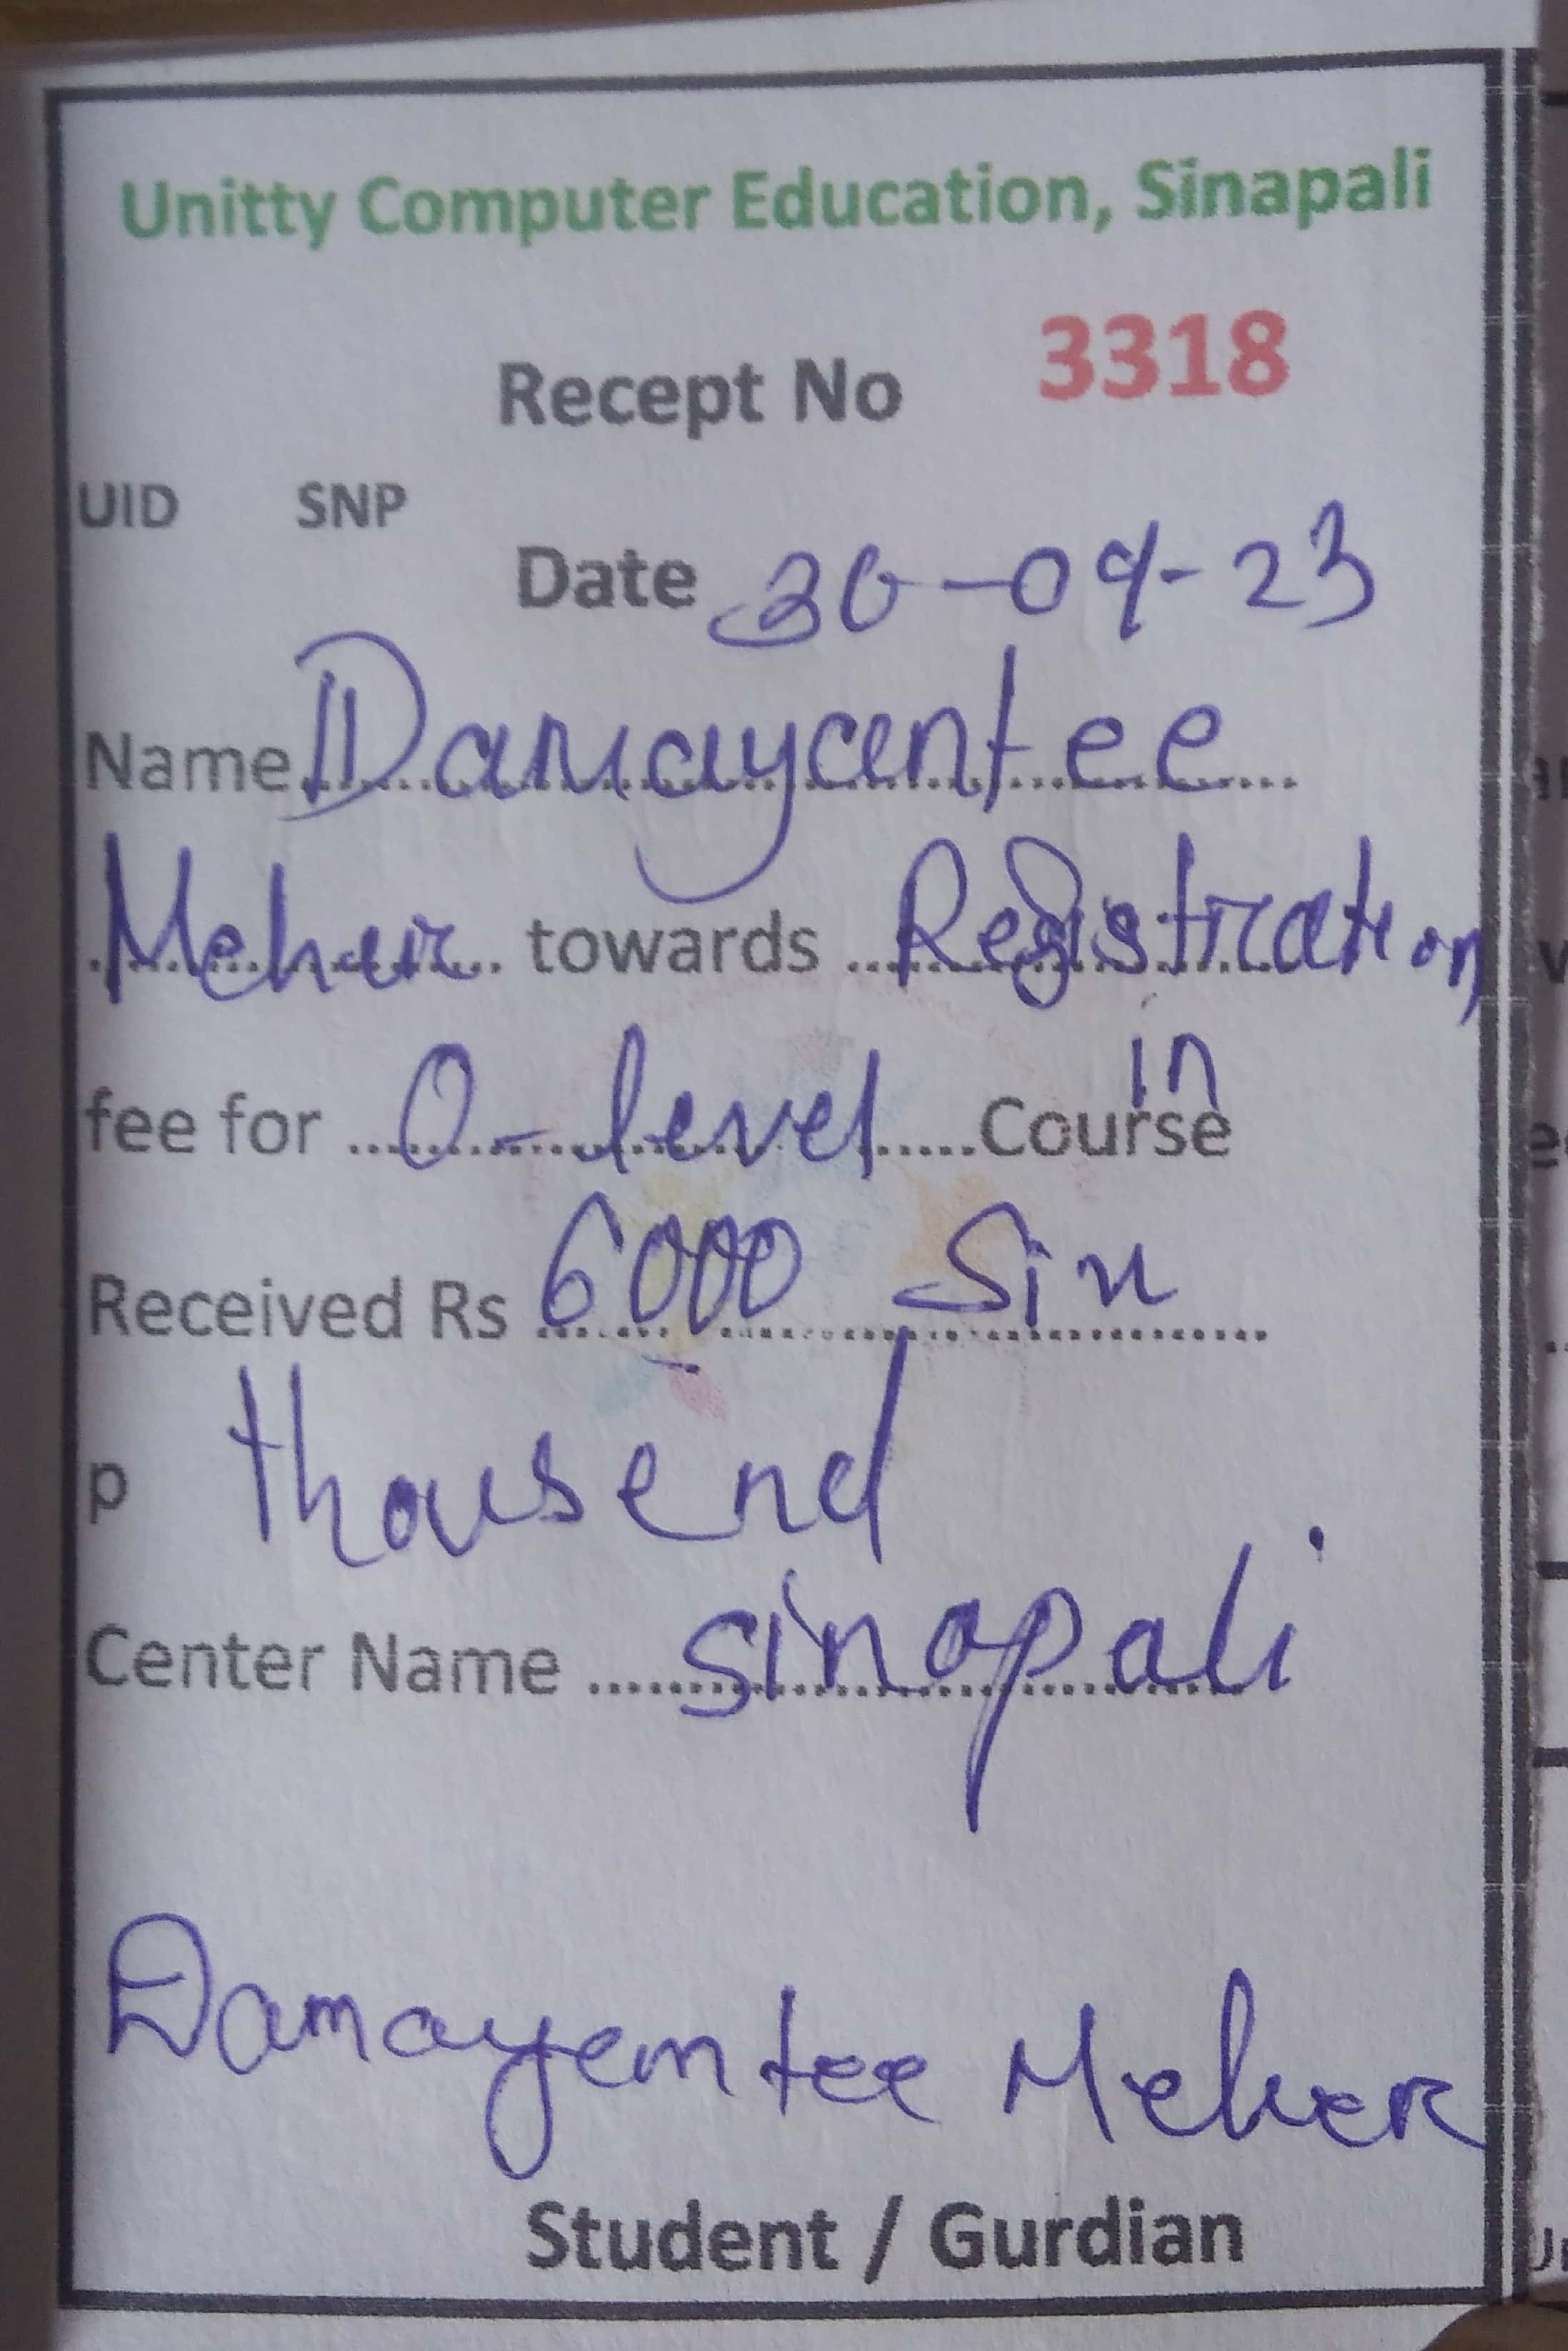 Unitty Computer Education, Sinapali
Recept No 3318
UID SNP
Date 30-09-23
Name Damayantee
Meher towards Registration
in
fee for O-level Course
Received Rs 6000 Six
p thousend
Center Name Sinapali
Damayentee Meher
Student / Gurdian